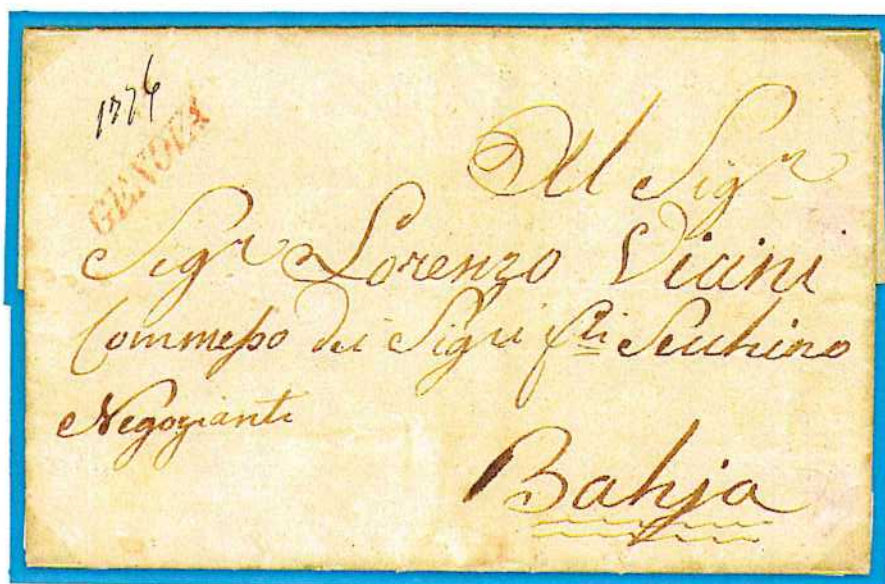 1776
GENOVA
Al Sigr
Sigr Lorenzo Vicini
Commesso dei Sigri flli Secchino
Negozianti
Bahja